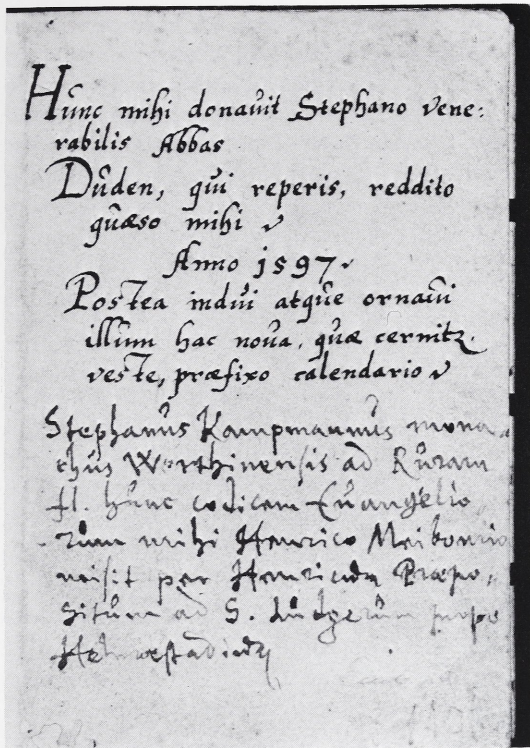 Hunc mihi donavit Stephano vene:
rabilis Abbas
Duden, qui reperis, reddito
quæso mihi
Anno 1597.
Postea indui atque ornavi
illum hac nova, quæ cernitr
veste, præfixo calendario
Stephanus Kampmannus mona
chus Werthinensis ad Ruram
fl. hunc codicem Euangelio
rum mihi Henrico Meibomio
misit per Henricum Præpo-
situm ad S. Ludgerum prope
Helmestadium